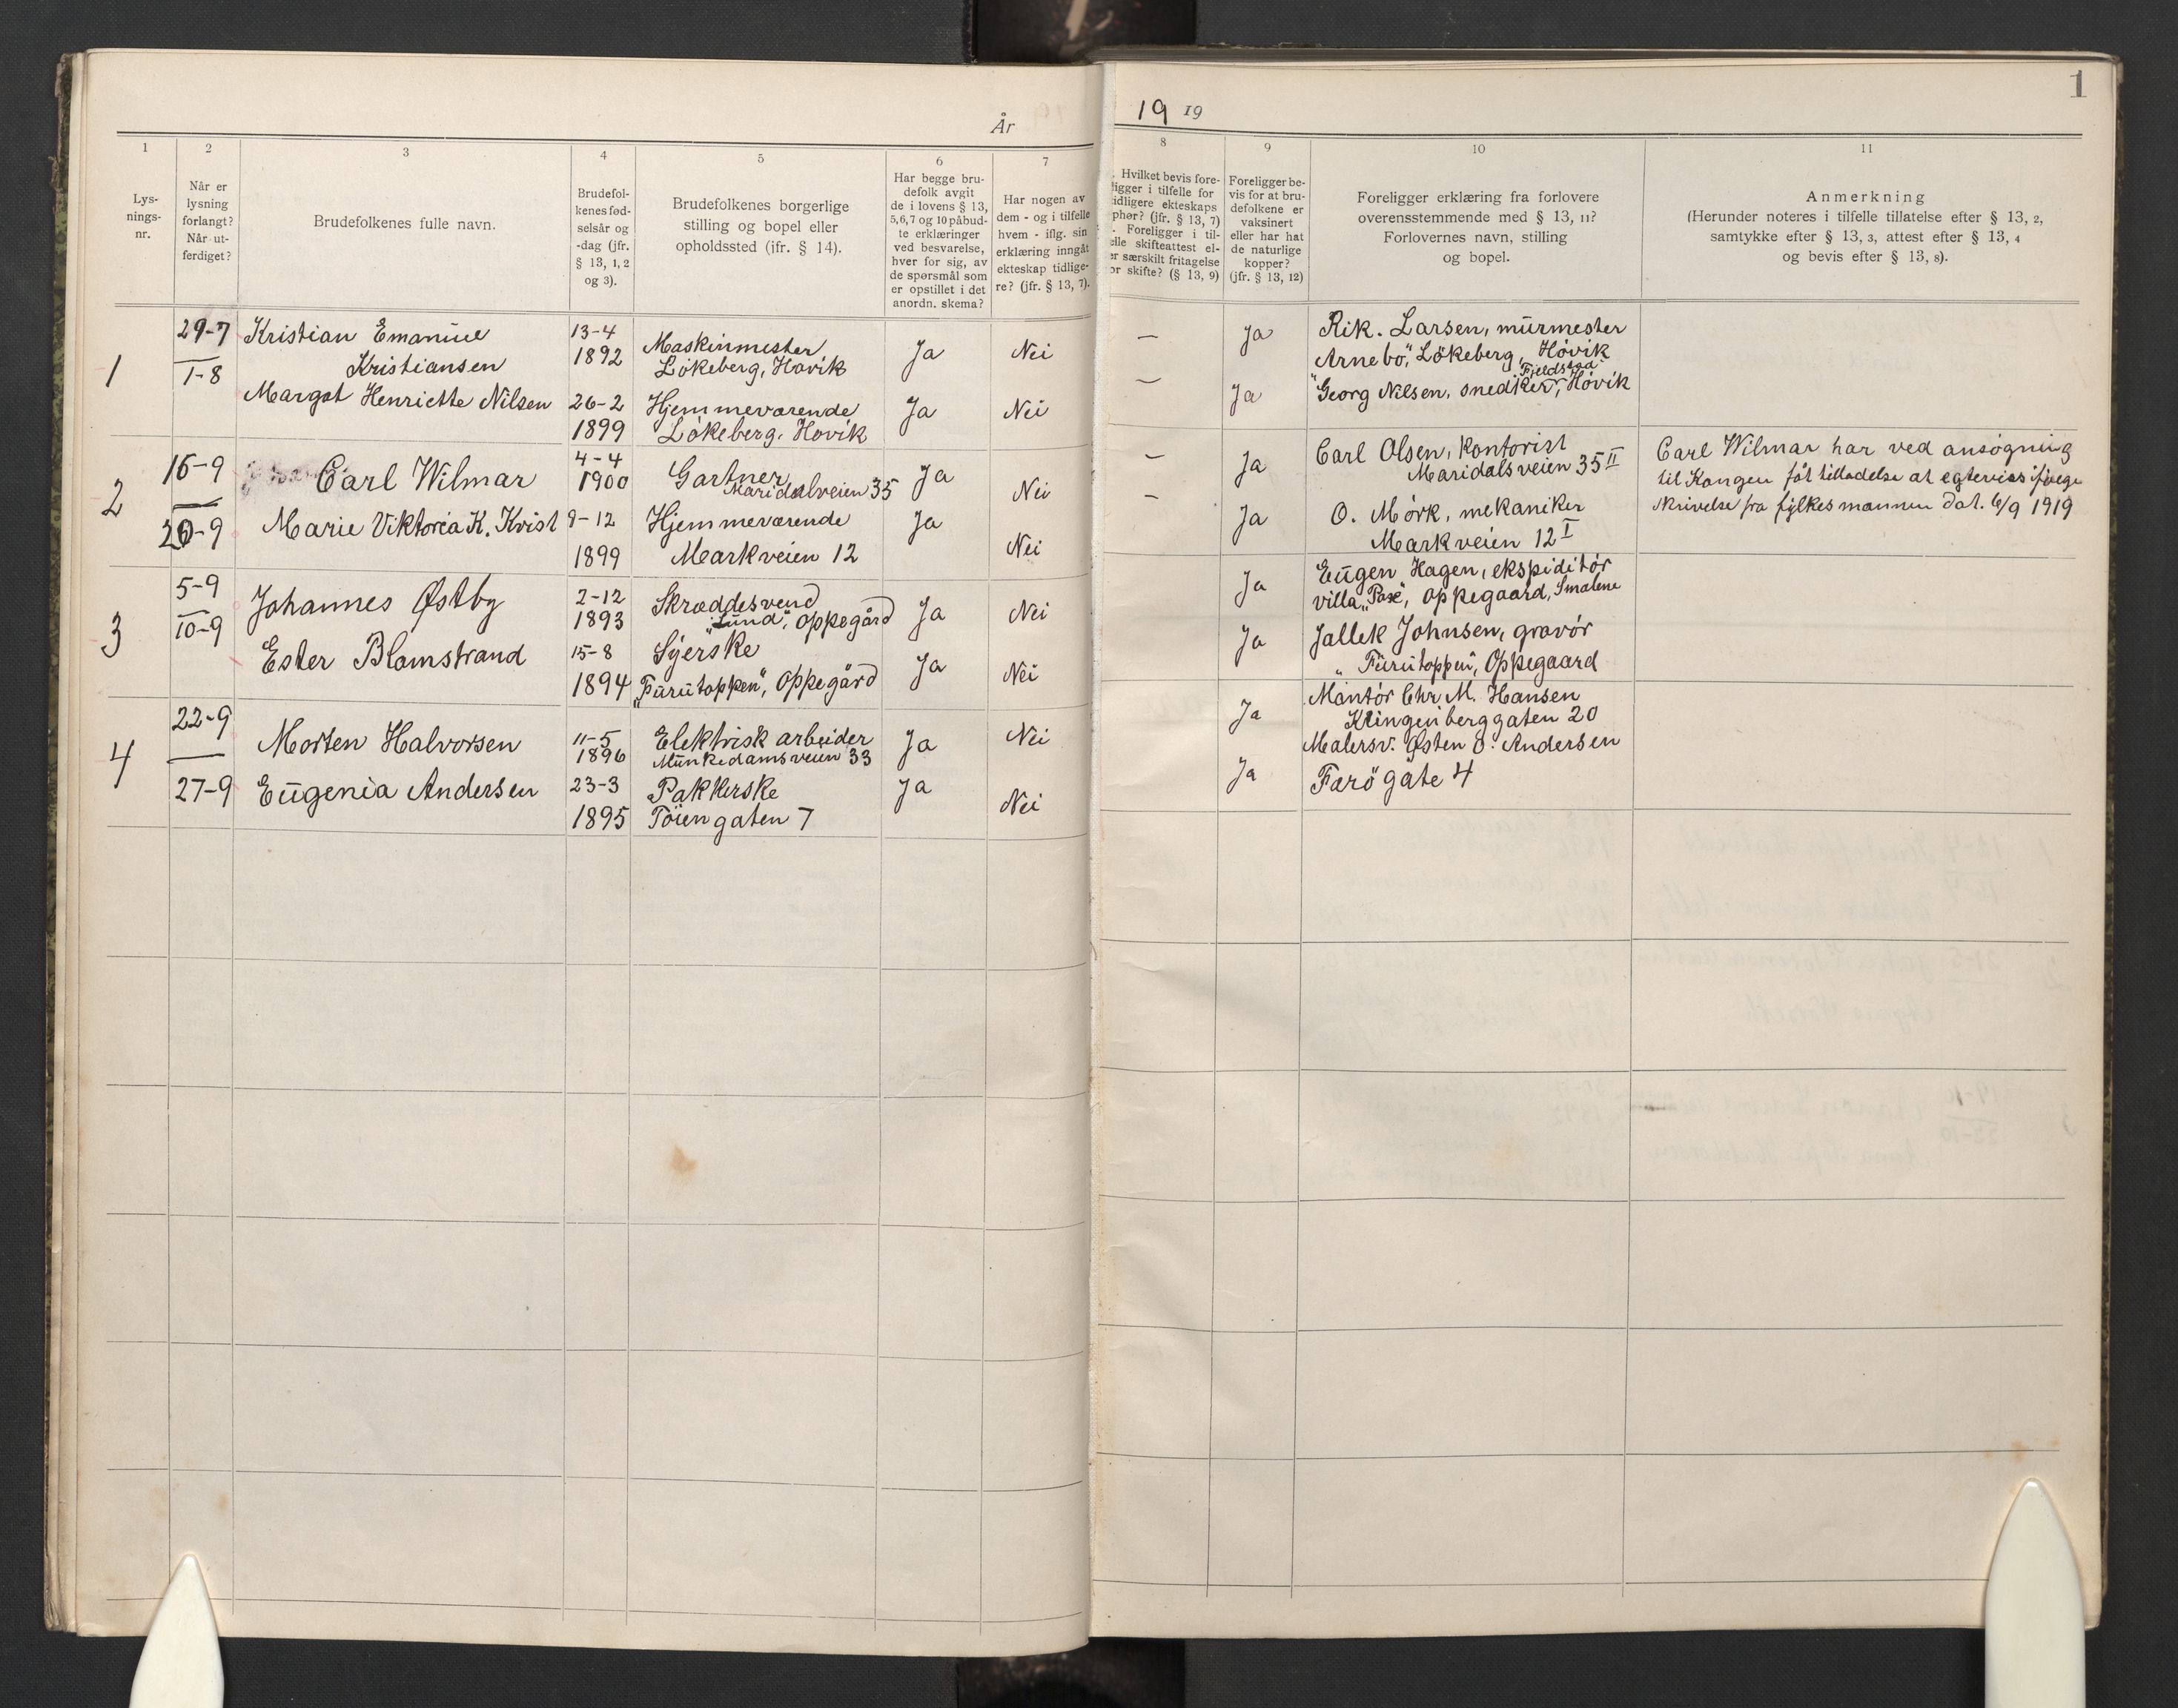 1
År 19 19
1 2 3 4 5 6 7 8 9 10 11
Lys-
nings-
nr.
Når er
lysning
forlangt?
Når ut-
ferdiget?
Brudefolkenes fulle navn.
Brudefol-
kenes fød-
selsår og
-dag (jfr.
§ 13, 1, 2
og 3).
Brudefolkenes borgerlige
stilling og bopel eller
opholdssted (jfr. § 14).
Har begge bru-
defolk avgit
de i lovens § 13,
5, 6, 7 og 10 påbud-
te erklæringer
ved besvarelse,
hver for sig, av
de spørsmål som
er opstillet i det
anordn. skema?
Har nogen av
dem - og i tilfelle
hvem - iflg. sin
erklæring inngåt
ekteskap tidlige-
re? (jfr. § 13, 7).
Hvilket bevis fore-
ligger i tilfelle for
tidligere ekteskaps
ophør? (jfr. § 13, 7)
Foreligger i til-
felle skifteattest el-
ler særskilt fritagelse
for skifte? (§ 13, 9)
Foreligger be-
vis for at bru-
defolkene er
vaksinert
eller har hat
de naturlige
kopper?
(jfr. § 13, 12)
Foreligger erklæring fra forlovere
overensstemmende med § 13, 11?
Forlovernes navn, stilling
og bopel.
Anmerkning
(Herunder noteres i tilfelle tillatelse efter § 13, 2,
samtykke efter § 13, 3, attest efter § 13, 4
og bevis efter § 13, 8).
1
29-7
1-8
Kristian Emanuel
Kristiansen
13-4
1892
Maskinmester
Lökeberg, Hövik
Ja
Nei
—
Ja
Rik. Larsen, murmester
"Arnebo", Lökeberg, Hövik
Margot Henriette Nilsen
26-2
1899
Hjemmeværende
Lökeberg, Hövik
Ja
Nei
—
Ja
Georg Nilsen, snedker, "Fjeldstad", Hövik
2
16-9
20-9
Carl Wilmar
4-4
1900
Gartner
Maridalveien 35
Ja
Nei
—
Ja
Carl Olsen, kontorist
Maridalsveien 35 II
Carl Wilmar har ved ansögning
til Kongen fåt tilladelse at egtevies ifölge
skrivelse fra fylkesmannen dat. 6/9 1919
Marie Viktoria K. Kvist
9-12
1899
Hjemmeværende
Markveien 12
Ja
Nei
—
Ja
O. Mörk, mekaniker
Markveien 12 I
3
5-9
10-9
Johannes Østby
2-12
1893
Skræddesvend
"Lund", Oppegård
Ja
Nei
Ja
Eugen Hagen, ekspiditör
villa "Pax", Oppegaard, Smalene
Ester Blomstrand
15-8
1894
Syerske
"Furutoppen", Oppegård
Ja
Nei
Ja
Jallek Johnsen, gravör
"Furutoppen", Oppegaard
4
22-9
27-9
Morten Halvorsen
11-5
1896
Elektrisk arbeider
Munkedamsveien 33
Ja
Nei
Ja
Montör Chr. M. Hansen
Klingenberggaten 20
Eugenia Andersen
23-3
1895
Pakkerske
Töiengaten 7
Ja
Nei
Ja
Malersv. Østen O. Andersen
Færögate 4